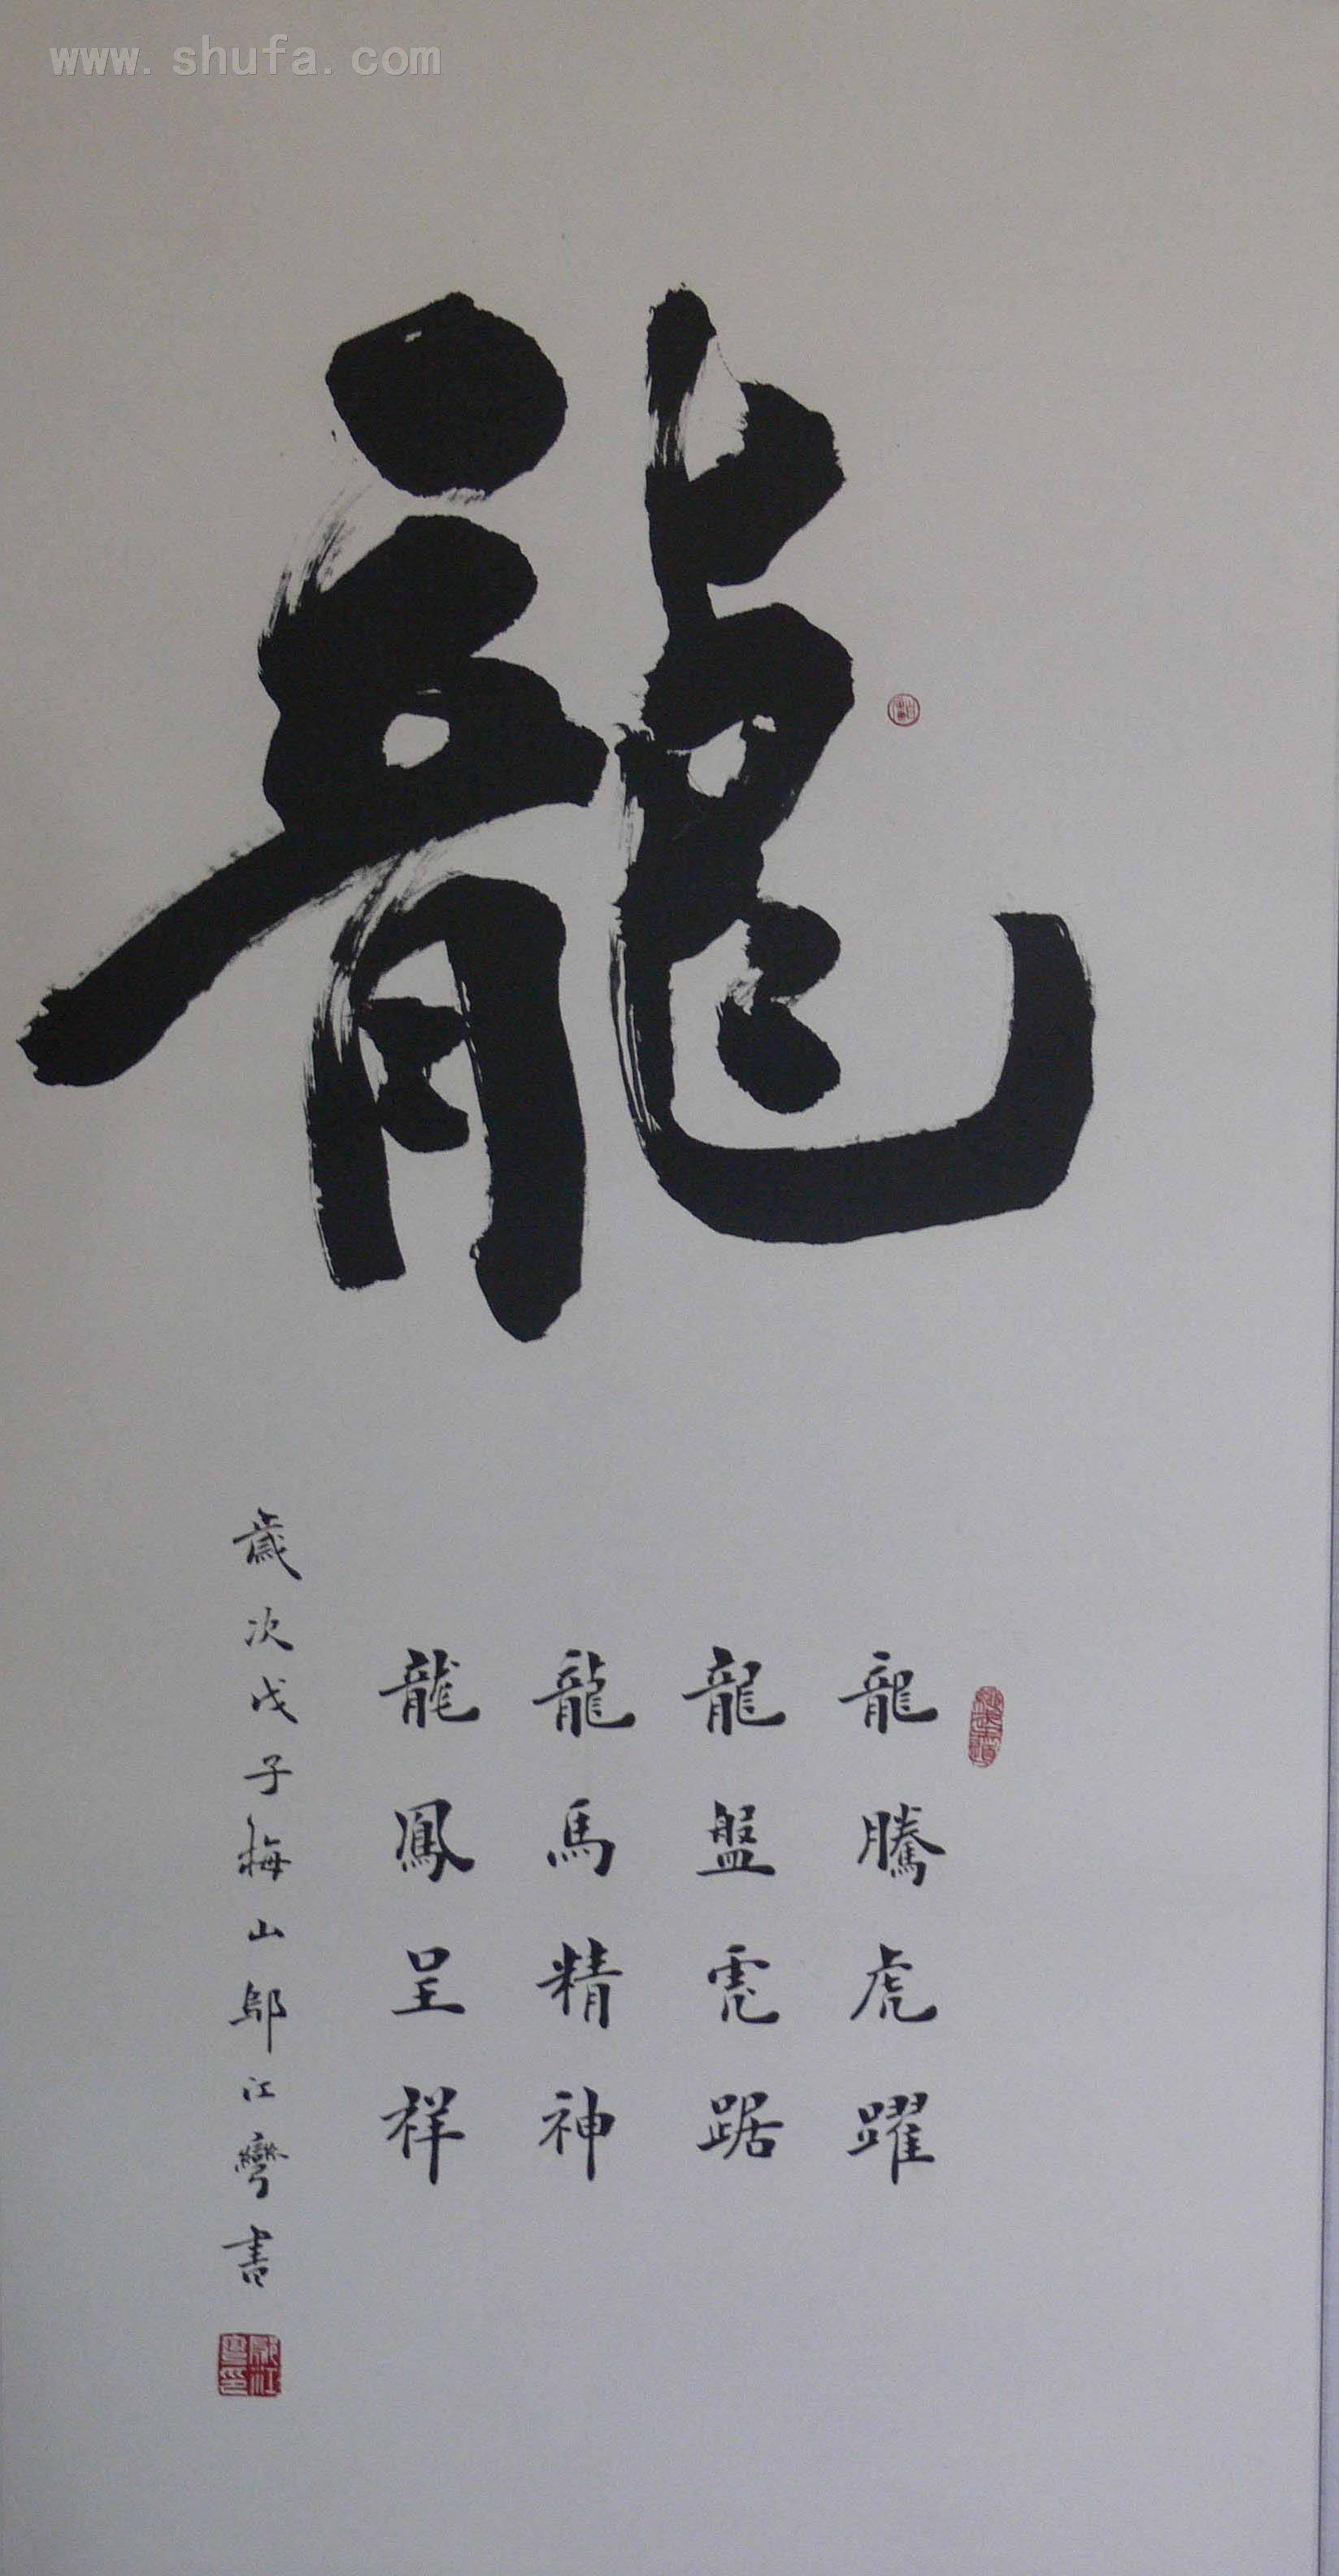 www.shufa.com
龍
龍騰虎躍
龍盤虎踞
龍馬精神
龍鳳呈祥
歲次戊子梅山鄔江彎書